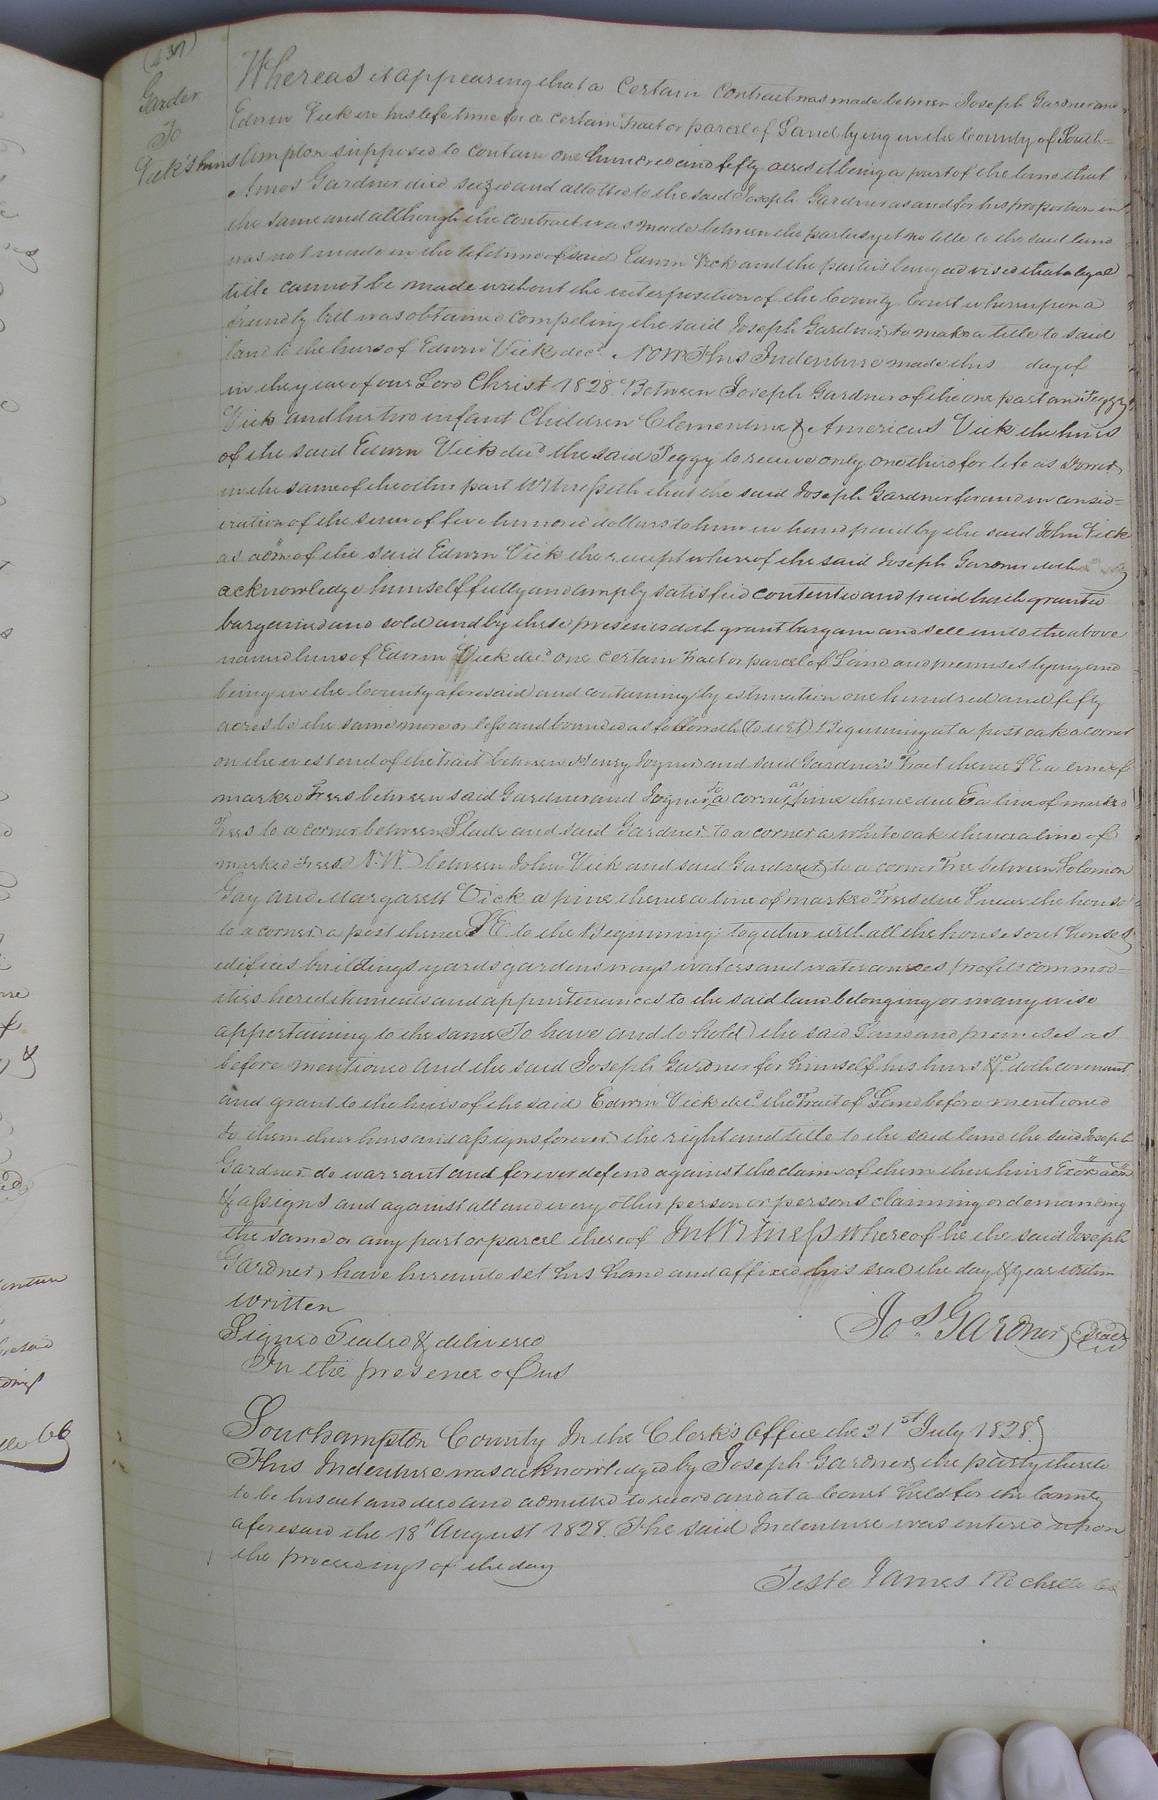 (437)
Garder
To
Vick's heirs
Whereas it appearing that a Certain Contract was made between Joseph Gardner and
Edwin Vick in his life time for a certain Tract or parcel of Land lying in the County of South=
ampton supposed to contain one hundred and fifty acres it being a part of the land that
Amos Gardner died seized and allotted to the said Joseph Gardner as and for his proportion in
the same and although the contract was made between the parties yet no title to the said land
was not made in the lifetime of said Edwin Vick and the parties being advised that a legal
title cannot be made without the interposition of the County Court whereupon a
friendly bill was obtained compeling the said Joseph Gardner to make a title to said
land to the heirs of Edwin Vick decd. Now This Indenture made this day of
in the year of our Lord Christ 1828 Between Joseph Gardner of the one part and Peggy
Vick and her two infant Children Clementine & Americus Vick the heirs
of the said Edwin Vick decd the said Peggy to receive only one third for life as Dower
in the same of the other part Witnesseth that the said Joseph Gardner for and in consid=
eration of the sum of five hundred dollars to him in hand paid by the said John Vick
as adm of the said Edwin Vick the receipt whereof the said Joseph Gardner doth
acknowledge himself fully and amply satisfied contented and paid hath granted
bargained and sold and by these presents doth grant bargain and sell unto the above
named heirs of Edwin Vick decd one certain Tract or parcel of Land and premises lying and
being in the County aforesaid and containing by estimation one hundred and fifty
acres be the same more or less and bounded as followeth (to wit) Beginning at a post oak a corner
on the west end of the tract between Henry Joyner and said Gardner's Tract thence S E a line of
marked Trees between said Gardner and Joyner To a corner a pine thence due E a line of marked
Trees to a corner between Slade and said Gardner to a corner a white oak thence a line of
marked Trees N.W. between John Vick and said Gardner to a corner Tree between Solomon
Gay and Margarett Vick a pine thence a line of marked Trees due S near the house
to a corner a post thence S E to the Beginning together with all the houses out houses
edifices buildings yards gardens ways waters and water courses profits commod=
ities hereditaments and appurtenances to the said land belonging or in any wise
appertaining to the same To have and to hold the said Land and premises as
before mentioned and the said Joseph Gardner for himself his heirs &c doth covenant
and grant to the heirs of the said Edwin Vick decd the Tract of Land before mentioned
to them their heirs and assigns forever the right and title to the said land the said Joseph
Gardner do warrant and forever defend against the claim of them their heirs Exors adm
& assigns and against all and every other person or persons claiming or demanding
the same or any part or parcel thereof In Witness whereof he the said Joseph
Gardner have hereunto set his hand and affixed his seal the day & year written
written
Jos. Gardner Seal
Signed Sealed & delivered
In the presence of us
Southampton County In the Clerk's Office the 21st July 1828
This Indenture was acknowledged by Joseph Gardner the party thereto
to be his act and deed and admitted to record and at a Court held for the County
aforesaid the 18th August 1828. The said Indenture was entered upon
the proceedings of the day
Teste James Rochelle